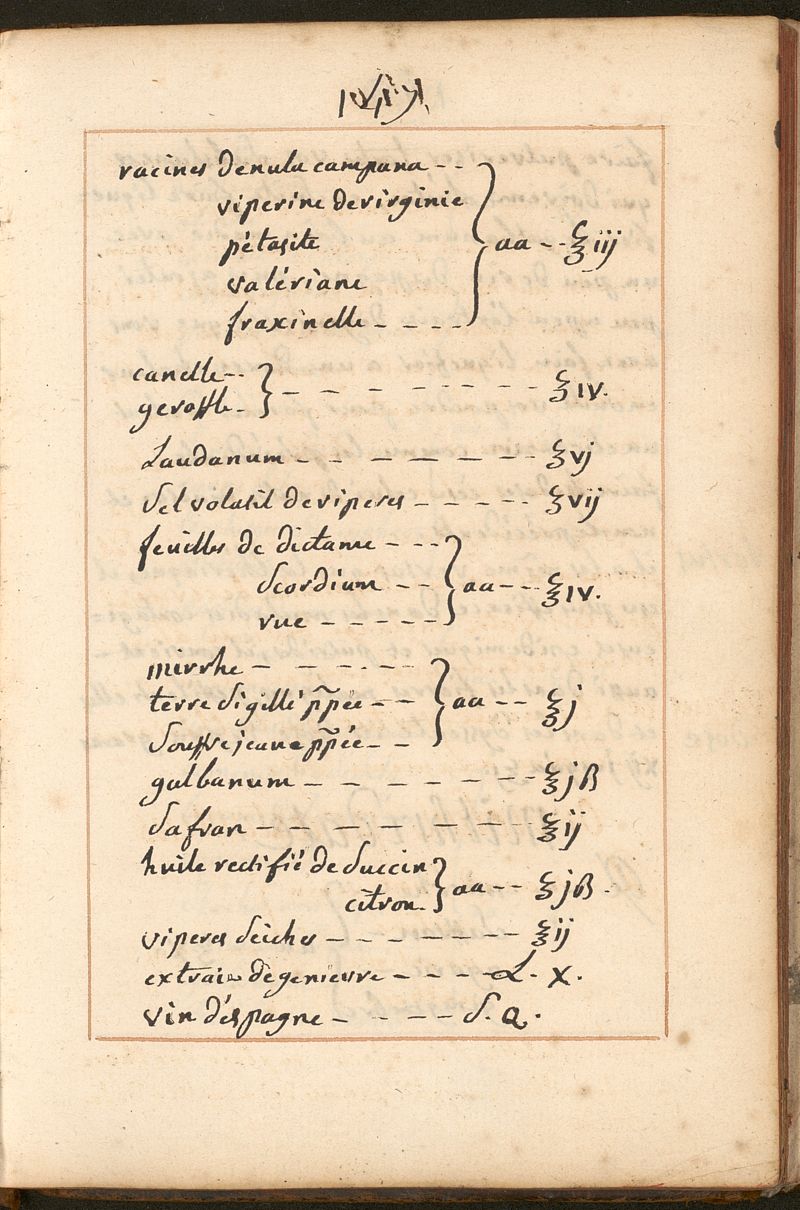 racines denula campana - -
viperine devirginie
pétasite } aa - - ℥iij
valériane
fraxinelle - - - -
canelle - -
geroffle - } - - - - - - - ℥iv.
Laudanum - - - - - - ℥vj
Sel volatil de viperes - - - - - ℥vij
feuilles de dictame - - -
Scordium - - } aa - - - ℥iv.
rue - - - - -
mirrhe - - - - - -
terre Sigillé ppée - - } aa - - ℥j
Souffre jeaune ppée - -
galbanum - - - - - - - ℥jß
Safran - - - - - - - ℥ij
huile rectifié de Succin
citron - } aa - - ℥jß -
viperes Seiches - - - - - - ℥ij
extrait de genievre - - - - L. X.
vin d'espagne - - - - S. Q.